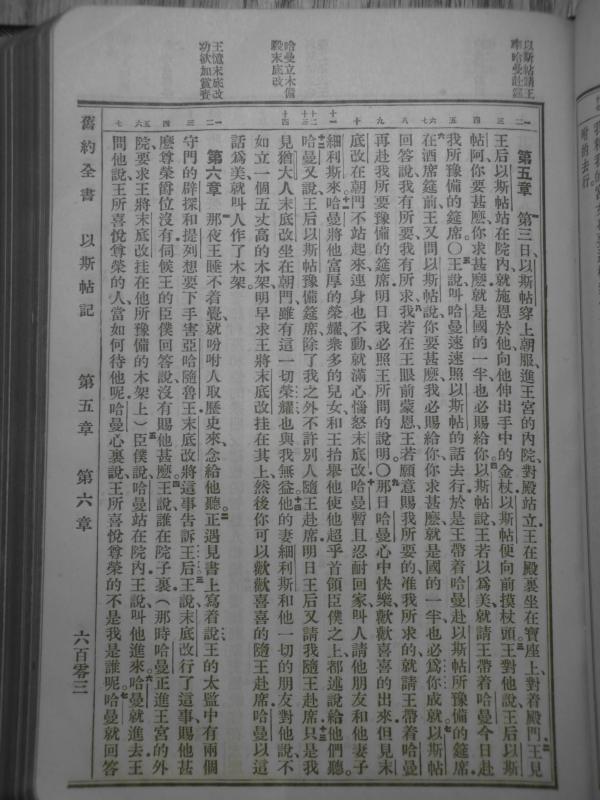 以斯帖請王
率哈曼赴筵
哈曼立木備
殺末底改
王憶末底改
功欲加賞賚
第五章 第三日以斯帖穿上朝服進王宮的內院對殿站立王在殿裏坐在寶座上對着殿門王見
王后以斯帖站在院內就施恩於他向他伸出手中的金杖以斯帖便向前摸杖頭王對他說王后以斯
帖阿你要甚麼你求甚麼就是國的一半也必賜給你以斯帖說王若以爲美就請王帶着哈曼今日赴
我所豫備的筵席〇王說叫哈曼速速照以斯帖的話去行於是王帶着哈曼赴以斯帖所豫備的筵席
在酒席筵前王又問以斯帖說你要甚麼我必賜給你你求甚麼就是國的一半也必爲你成就以斯帖
回答說我有所要我有所求我若在王眼前蒙恩王若願意賜我所要的准我所求的就請王帶着哈曼
再赴我所要豫備的筵席明日我必照王所問的說明〇那日哈曼心中快樂歡歡喜喜的出來但見末
底改在朝門不站起來連身也不動就滿心惱怒末底改哈曼暫且忍耐回家叫人請他朋友和他妻子
細利斯來哈曼將他富厚的榮耀衆多的兒女和王抬舉他使他超乎首領臣僕之上都述說給他們聽
哈曼又說王后以斯帖豫備筵席除了我之外不許別人隨王赴席明日王后又請我隨王赴席只是我
見猶大人末底改坐在朝門雖有這一切榮耀也與我無益他的妻細利斯和他一切的朋友對他說不
如立一個五丈高的木架明早求王將末底改挂在其上然後你可以歡歡喜喜的隨王赴席哈曼以這
話爲美就叫人作了木架
第六章 那夜王睡不着覺就吩咐人取歷史來念給他聽正遇見書上寫着說王的太監中有兩個
守門的辟探和提列想要下手害亞哈隨魯王末底改將這事告訴王后王說末底改行了這事賜他甚
麼尊榮爵位沒有伺候王的臣僕回答說沒有賜他甚麼王說誰在院子裏（那時哈曼正進王宮的外
院要求王將末底改挂在他所豫備的木架上）臣僕說哈曼站在院內王說叫他進來哈曼就進去王
問他說王所喜悅尊榮的人當如何待他呢哈曼心裏說王所喜悅尊榮的不是我是誰呢哈曼就回答
舊約全書 以斯帖記 第五章 第六章 六百零三